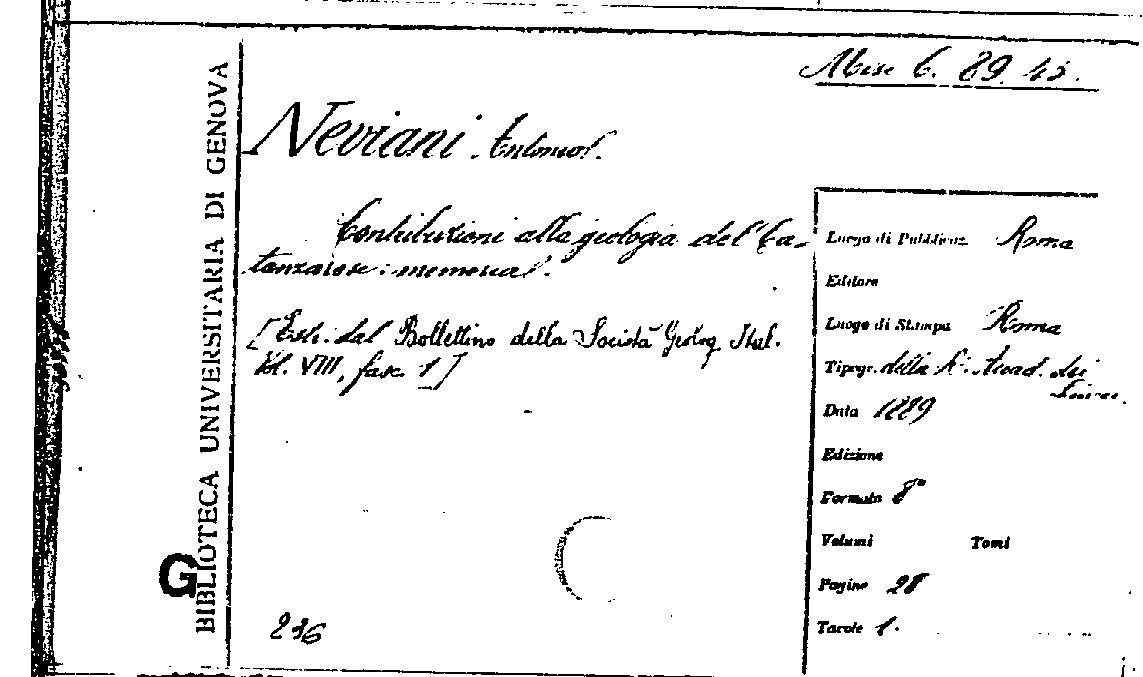 Misc. C. 89. 45.
BIBLIOTECA UNIVERSITARIA DI GENOVA
G
Neviani Antonio.
Contribuzioni alla geologia del Ca-
tanzarese: memoria.
[Estr. dal Bollettino della Società Geolog. Ital.
Vol. VIII, fasc. 1]
236
Luogo di Pubblicaz. Roma
Editore
Luogo di Stampa Roma
Tipogr. della R. Accad. dei
Lincei.
Data 1889
Edizione
Formato 8°
Volumi Tomi
Pagine 28
Tavole 1.